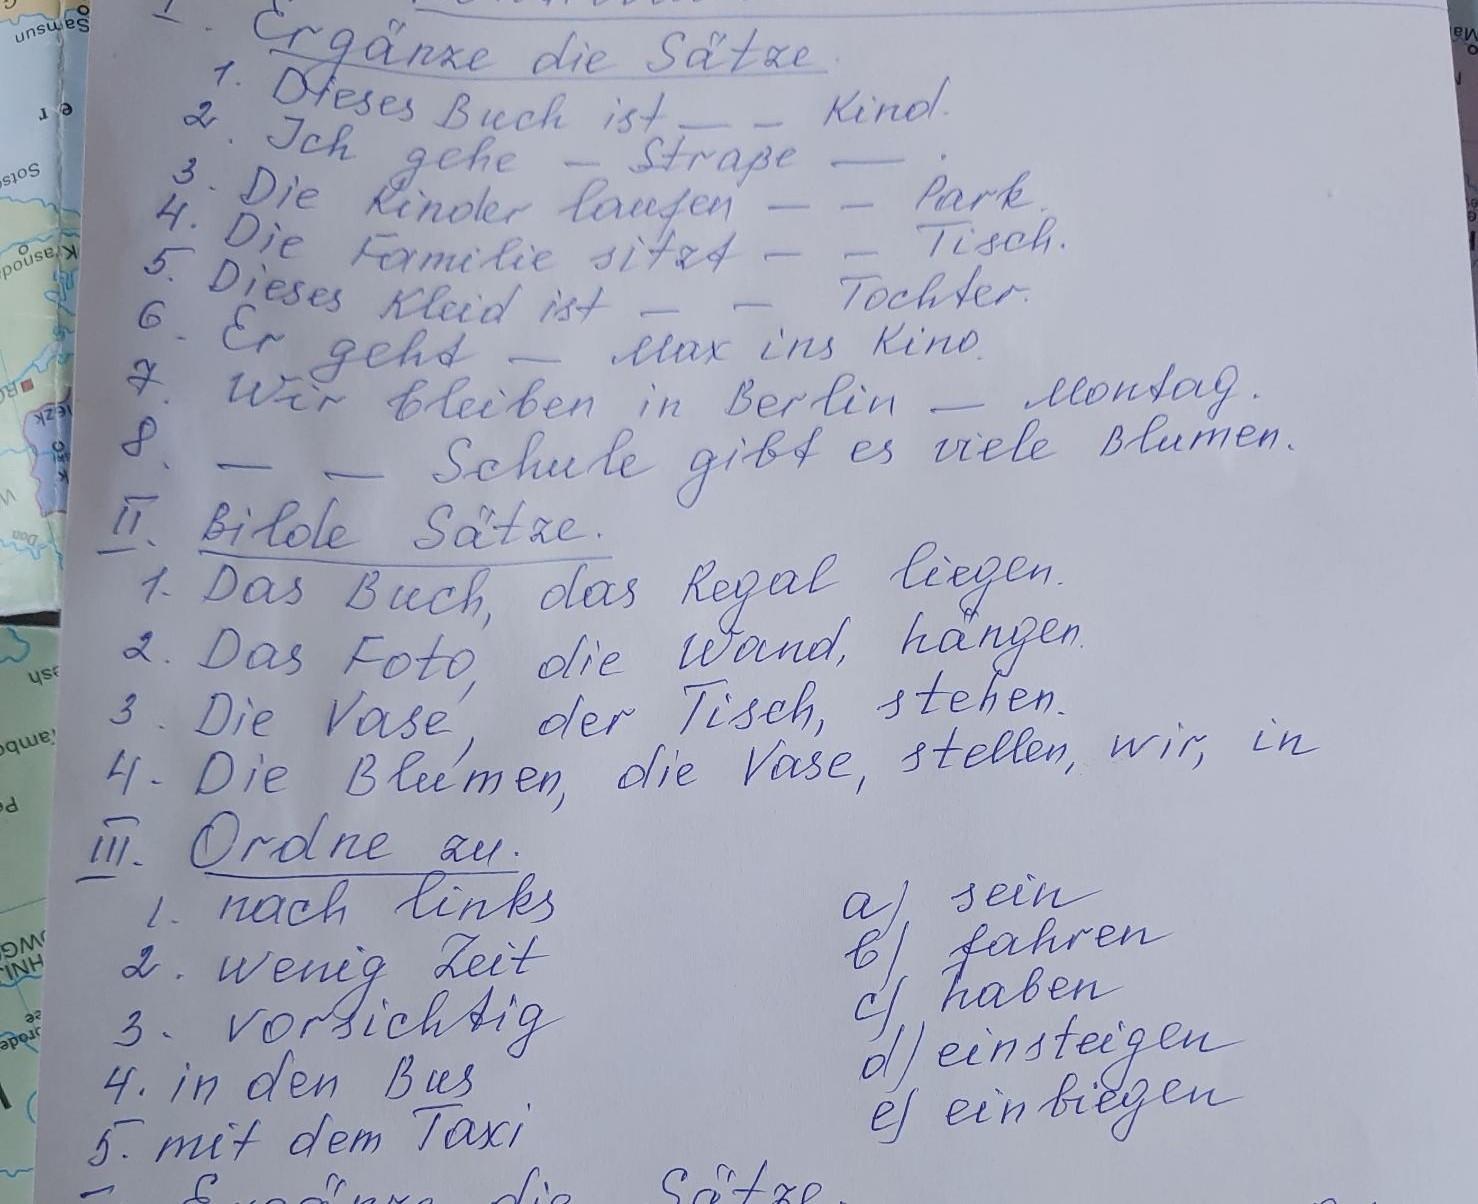 I. Ergänze die Sätze.
1. Dieses Buch ist — — Kind.
2. Ich gehe — Straße —.
3. Die Kinder laufen — — Park.
4. Die Familie sitzt — — Tisch.
5. Dieses Kleid ist — — Tochter.
6. Er geht — Max ins Kino.
7. Wir bleiben in Berlin — Montag.
8. — — Schule gibt es viele Blumen.
II. Bilde Sätze.
1. Das Buch, das Regal liegen.
2. Das Foto, die Wand, hängen.
3. Die Vase, der Tisch, stehen.
4. Die Blumen, die Vase, stellen, wir, in
III. Ordne zu.
1. nach links a) sein
2. wenig Zeit b) fahren
3. vorsichtig c) haben
4. in den Bus d) einsteigen
5. mit dem Taxi e) einbiegen
Ergänze die Sätze.
Samsun